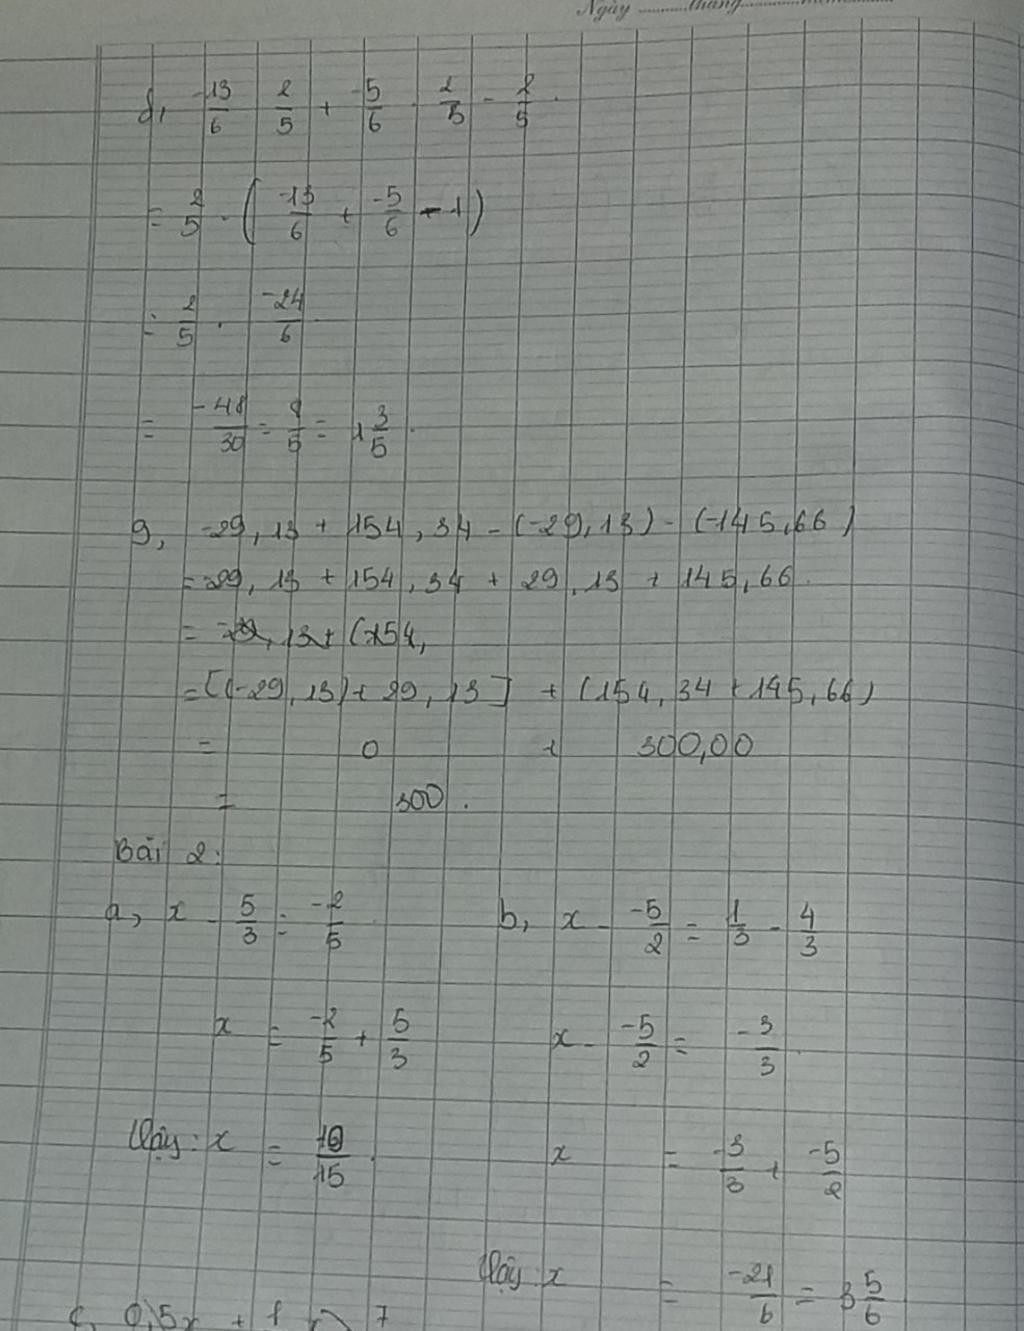 Ngày ........ tháng ........
d, -13/6 . 2/5 + -5/6 . 2/5 - 2/5 .
= 2/5 . ( -13/6 + -5/6 - 1 )
= 2/5 . -24/6
= -48/30 = 8/5 = 1 3/5 .
g, -29,13 + 154,34 - (-29,13) - (-145,66)
= -29,13 + 154,34 + 29,13 + 145,66
= -29,13 + (154,
= [(-29,13) + 29,13] + (154,34 + 145,66)
= 0 + 300,00
= 300 .
Bài 2:
a, x - 5/3 = -2/5
b, x - -5/2 = 1/3 - 4/3
x = -2/5 + 5/3
x - -5/2 = -3/3 .
Vậy: x = 19/15 .
x = -3/3 + -5/2
Vậy: x = -21/6 = 3 5/6
c, 0,5x + 1 7